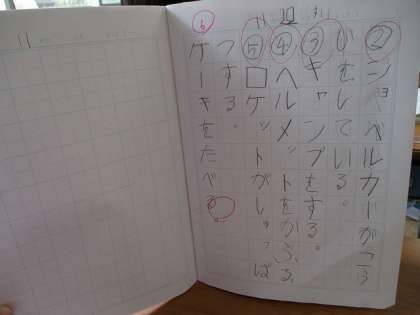 ②ショベルカーがこう
じをしている。
③キャンプをする。
④ヘルメットをかぶる。
⑤ロケットがしゅっぱ
つする。
⑥ケーキをたべる